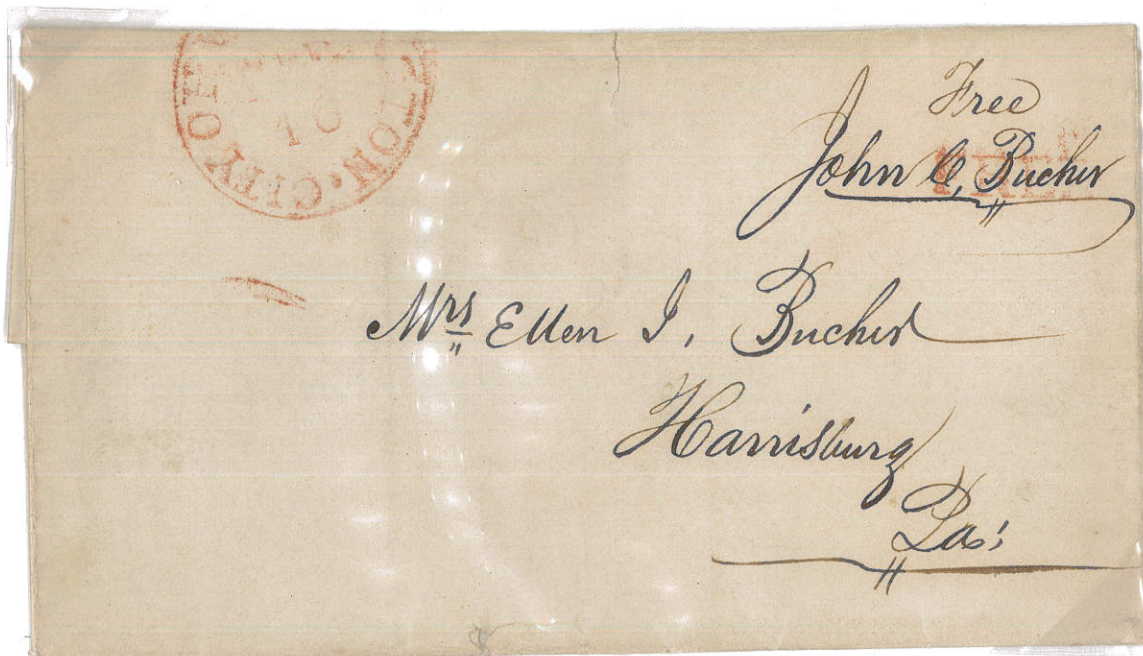 CITY OF
TON
Free
FREE
John C. Bucher
Mrs Ellen I. Bucher
Harrisburg
Pa: